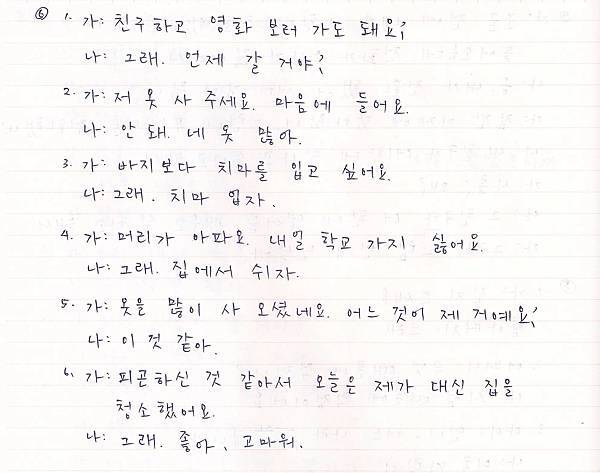 ⑥ 1. 가: 친구하고 영화 보러 가도 돼요?
나: 그래. 언제 갈 거야?
2. 가: 저 옷 사 주세요. 마음에 들어요.
나: 안 돼. 네 옷 많아.
3. 가: 바지보다 치마를 입고 싶어요.
나: 그래. 치마 입자.
4. 가: 머리가 아파요. 내일 학교 가지 싫어요.
나: 그래. 집에서 쉬자.
5. 가: 옷을 많이 사 오셨네요. 어느 것이 제 거예요?
나: 이 것 같아.
6. 가: 피곤하신 것 같아서 오늘은 제가 대신 집을
청소했어요.
나: 그래. 좋아, 고마워.